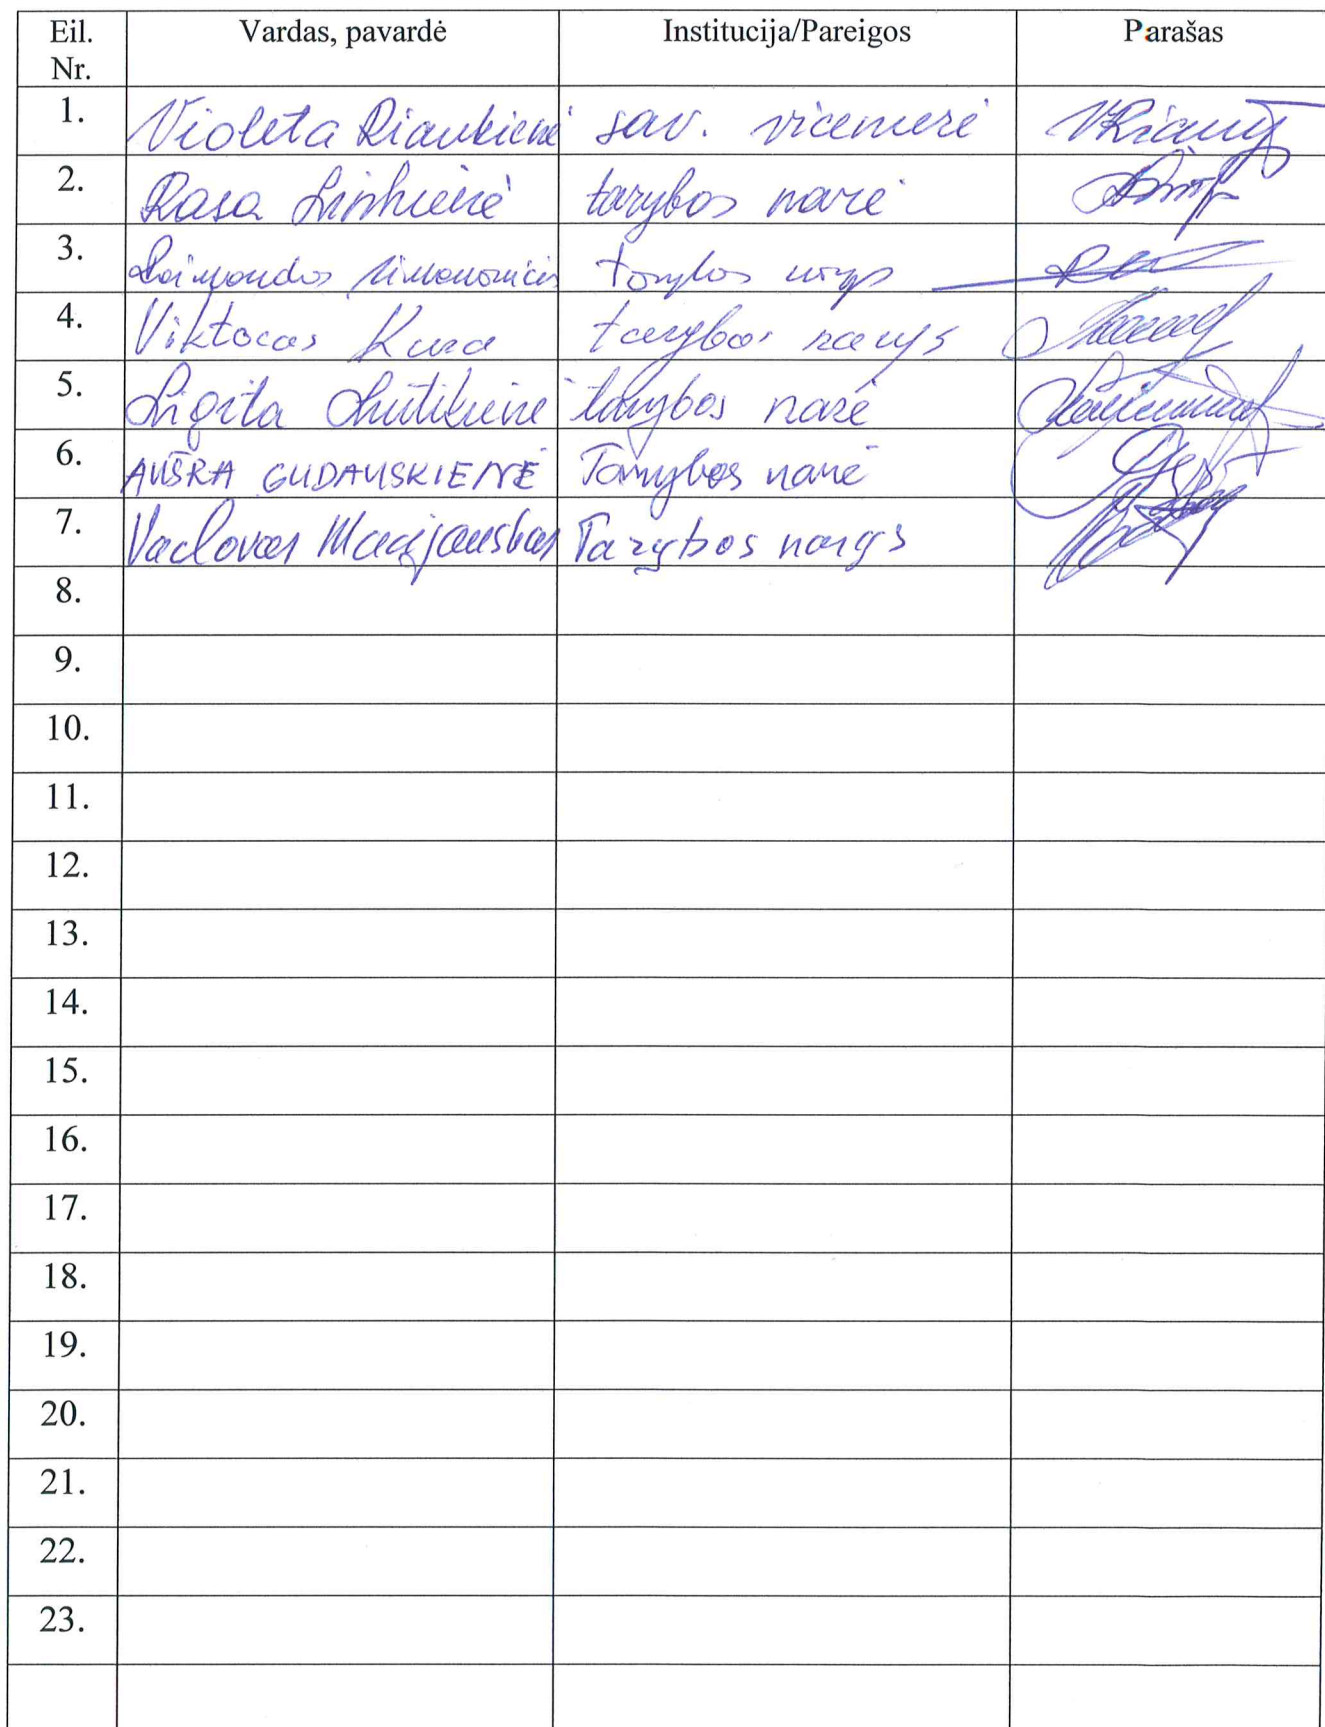 Eil. Nr. Vardas, pavardė Institucija/Pareigos Parašas
1. Violeta Riaukienė sav. vicemerė
2. Rasa Linkienė tarybos narė
3. Raimondas Simonavičius Tarybos narys
4. Viktoras Kura tarybos narys
5. Ligita Liutikienė tarybos narė
6. AUŠRA GUDAUSKIENĖ Tarybos narė
7. Vaclovas Macijauskas Tarybos narys
8.
9.
10.
11.
12.
13.
14.
15.
16.
17.
18.
19.
20.
21.
22.
23.